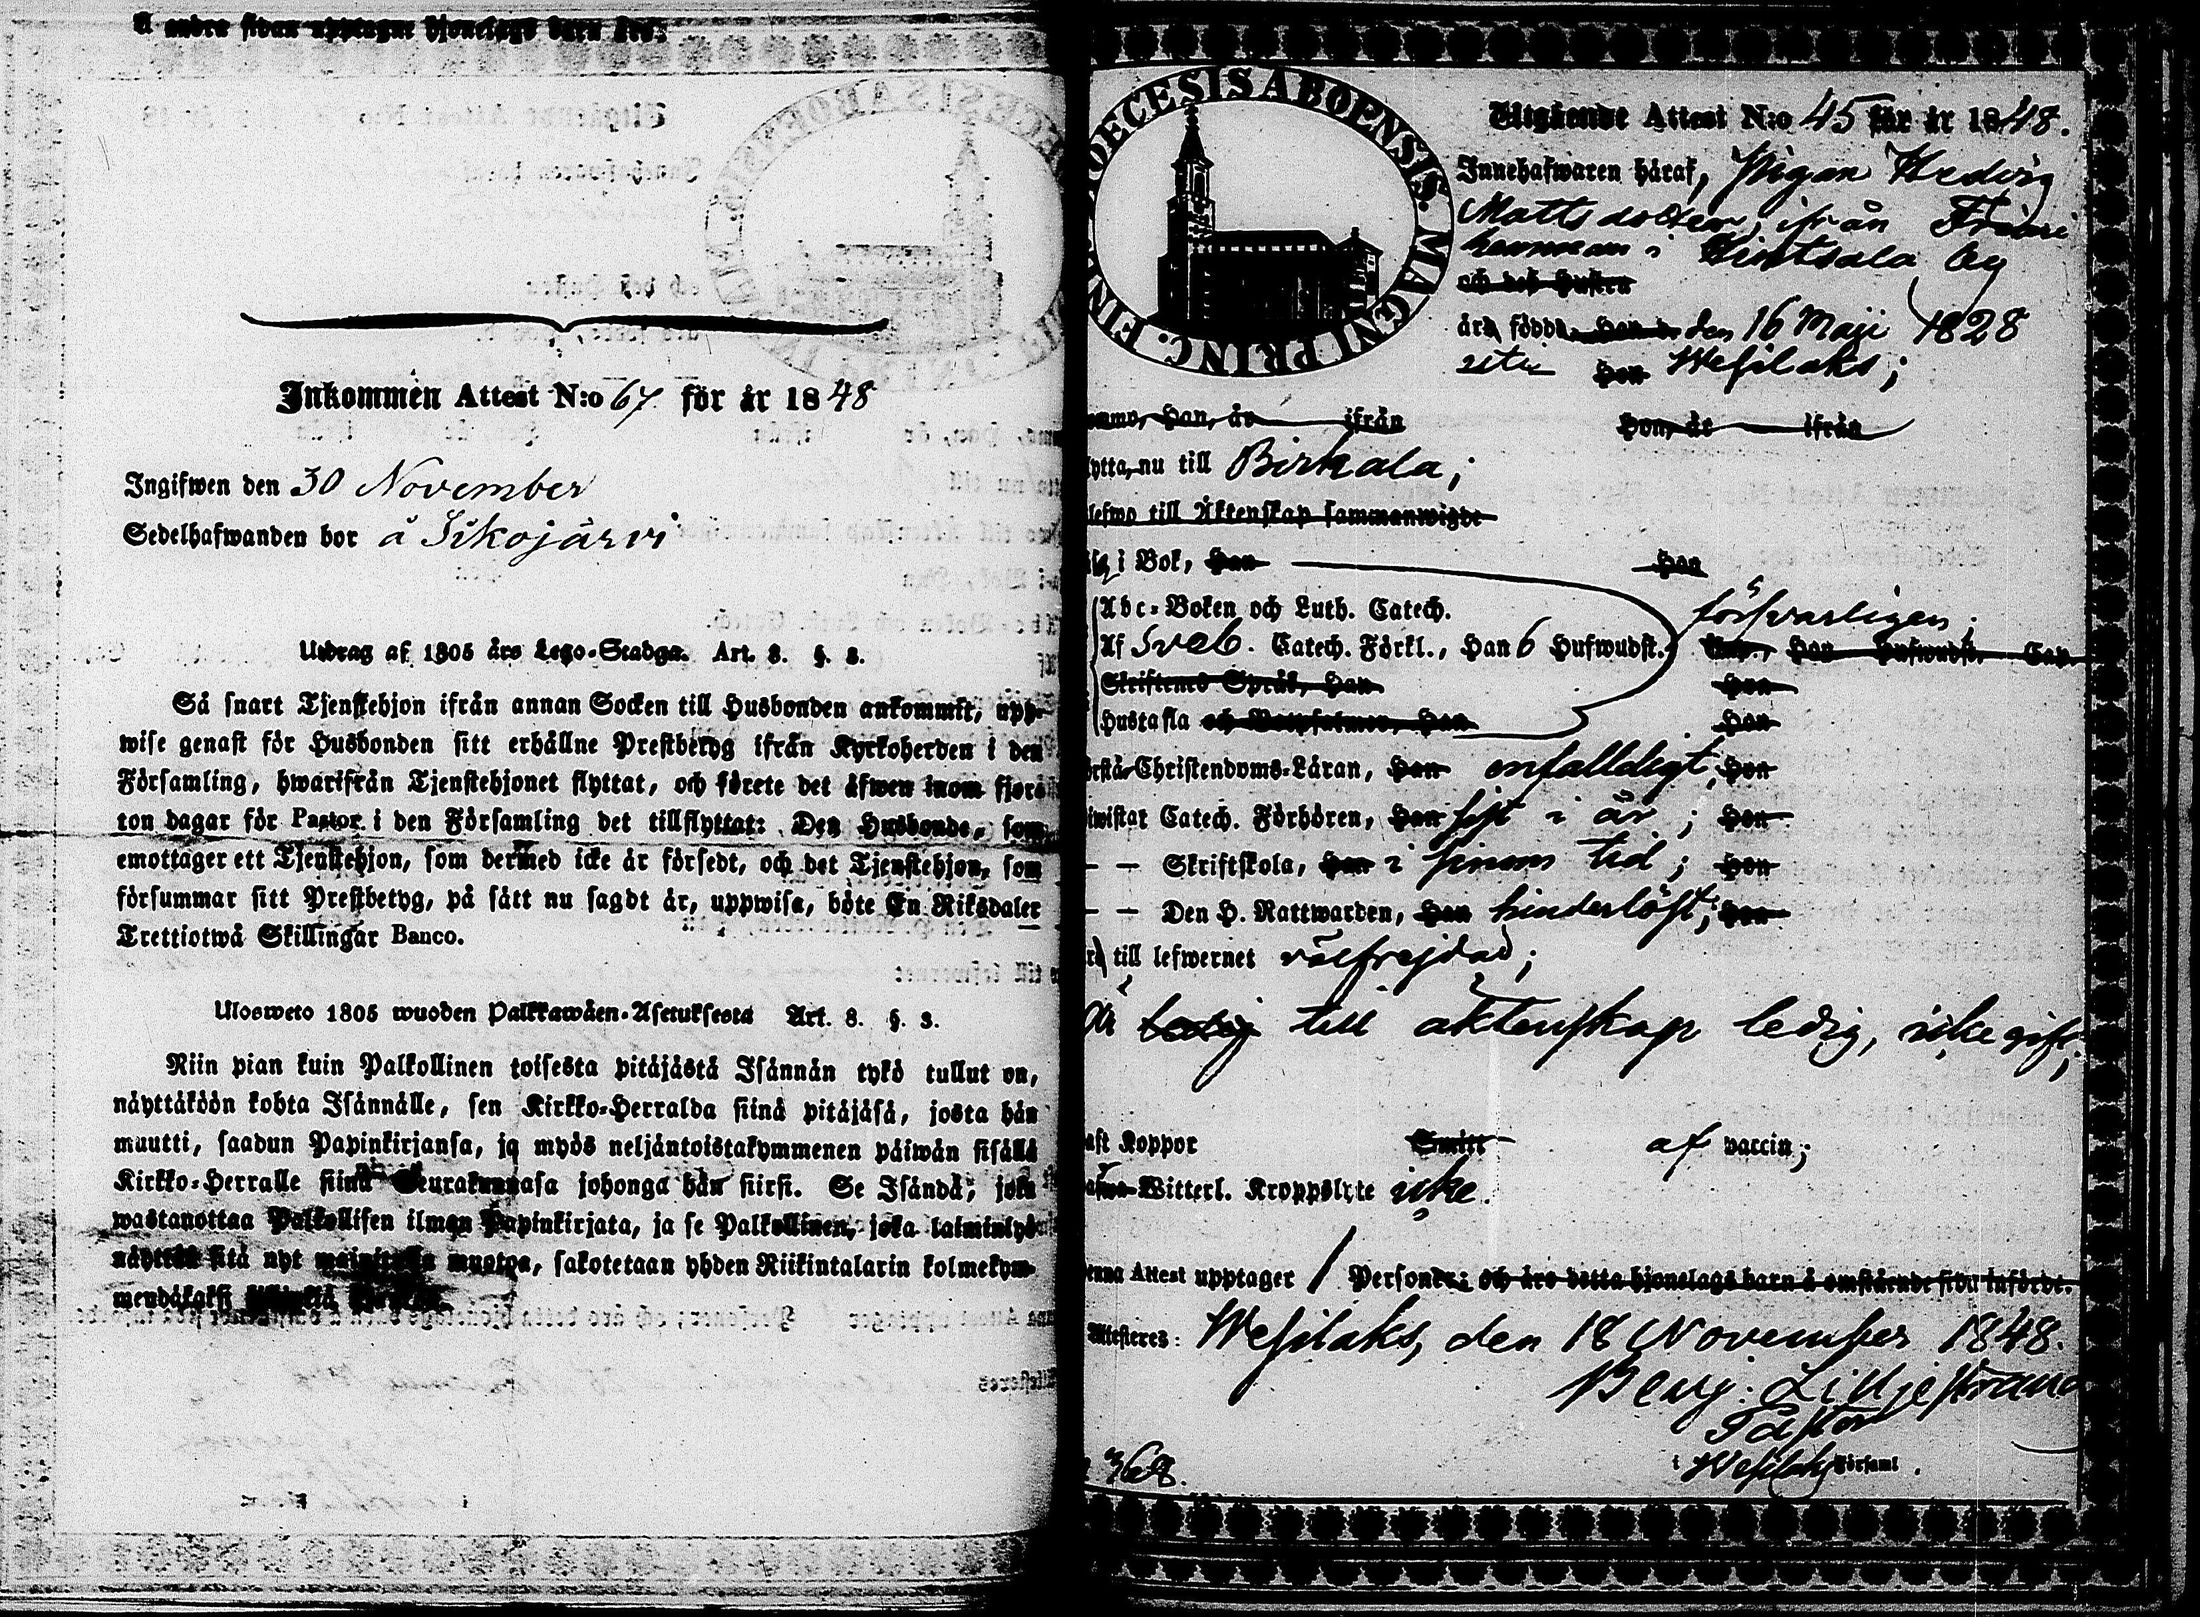 å andra sidan upptagne hjonelags barn äro:
Inkommen Attest N:o 67 för år 1848
Ingifwen den 30 November
Sedelhafwanden bor å Sikojärvi
Utdrag af 1805 års Lego-Stadga. Art. 8. §. 3.
Så snart Tjenstehjon ifrån annan Socken till Husbonden ankommit, upp-
wise genast för Husbonden sitt erhållne Prestbetyg ifrån Kyrkoherden i den
Församling, hwarifrån Tjenstehjonet flyttat, och förete det äfwen inom fjor-
ton dagar för Pastor i den Församling det tillflyttat: Den Husbonde, som
emottager ett Tjenstehjon, som dermed icke är försedt, och det Tjenstehjon, som
försummar sitt Prestbetyg, på sätt nu sagdt är, uppwisa, böte En Riksdaler
Trettiotwå Skillingar Banco.
Ulosweto 1805 wuoden Palkkawäen-Asetuksesta Art. 8. §. 3.
Niin pian kuin Palkollinen toisesta pitäjästä Isännän tykö tullut on,
näyttäköön kohta Isännälle, sen Kirkko-Herralda siinä pitäjäsä, josta hän
muutti, saadun Papinkirjansa, ja myös neljäntoistakymmenen päiwän sisällä
Kirkko-Herralle siinä Seurakunnasa johonga hän siirsi. Se Isändä, joka
wastanottaa Palkollisen ilman Papinkirjata, ja se Palkollinen, joka laiminlyö
näyttää sitä nyt mainitulla muotoa, sakotetaan yhden Riikintalarin kolmekym-
mendäkaksi
DIOECESIS ABOENSIS. MAGNI PRINC. FINL
Utgående Attest N:o 45 för år 1848.
Innehafwaren häraf, Pigan Hedvig
Matts dotter, ifrån
i by
och des hustru
äro födde, han d. den 16 Maji 1828
uti hon Wesilaks;
komne, han, år ifrån hon, år ifrån
flytta, nu till Birkala;
blefwo till Äktenskap sammanwigde
i Bok, han hon
Abc-Boken och Luth. Catech. försvarligen;
Af Sveb. Catech. Förkl., han 6 Hufwudst. hon Hufwudst. Cap.
Skriftenes Språk, han hon
Hustafla och Botpsalmer, han hon
förstå Christendoms-Läran, han enfalldigt, hon
bewistat Catech. Förhören, han sist i år; hon
— — Skriftskola, han i sinom tid; hon
— — Den H. Nattwarden, han hinderlöst; hon
till lefwernet välfrejdad;
är ledig till äktenskap ledig, icke gift;
haft Koppor Smitt af vaccin;
Witterl. Kroppslyte icke.
Denna Attest upptager 1 Personer; och äro detta hjonelags barn å omstående sida införde.
Attesteres: Wesilaks, den 18 November 1848.
Benj: Lilljestrand
Pastor
i Wesilaks Församl.